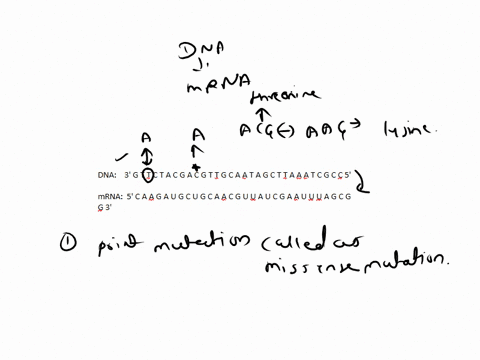 DNA
mRNA
threonine
A A A C G ↔ A A G → lysine.
DNA: 3' G T T C T A C G A C G T T G C A A T A G C T T A A A T C G C C 5'
mRNA: 5' C A A G A U G C U G C A A C G U U A U C G A A U U U A G C G
G 3'
① point mutation called as
missense mutation.